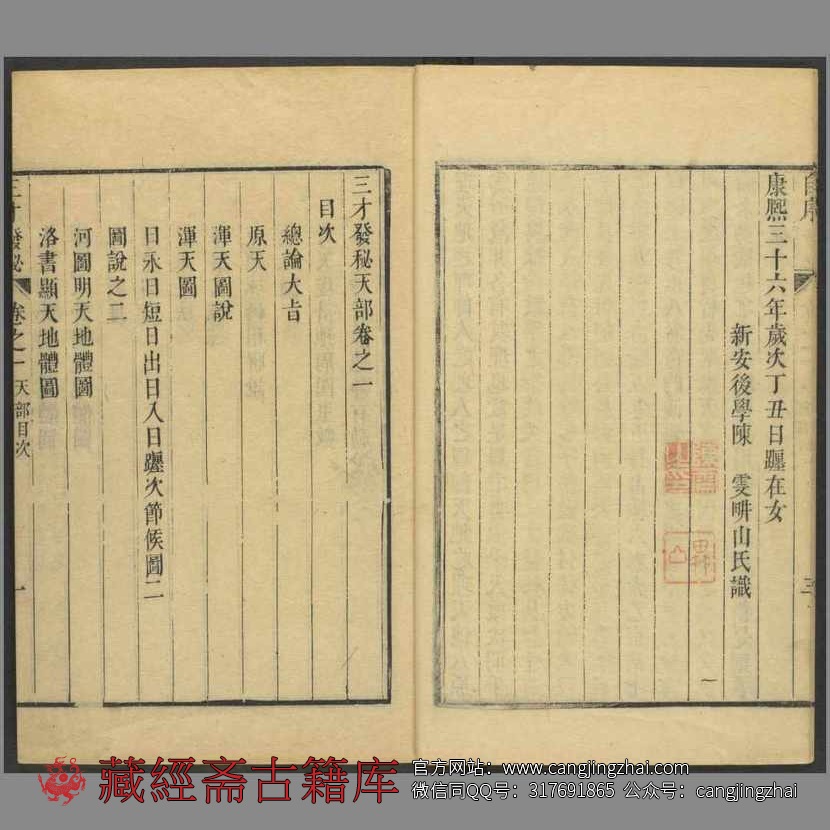 自序
康熙三十六年歲次丁丑日躔在女
新安後學陳　雯畊山氏識
三才發秘天部卷之一
目次
總論大旨
原天
渾天圖說
渾天圖
日永日短日出日入日躔次節候圖二
圖說之二
河圖明天地體圖
洛書顯天地體圖
三才發秘　卷之一　天部目次　一
藏經斋古籍库
官方网站：www.cangjingzhai.com
微信同QQ号：317691865 公众号：cangjingzhai